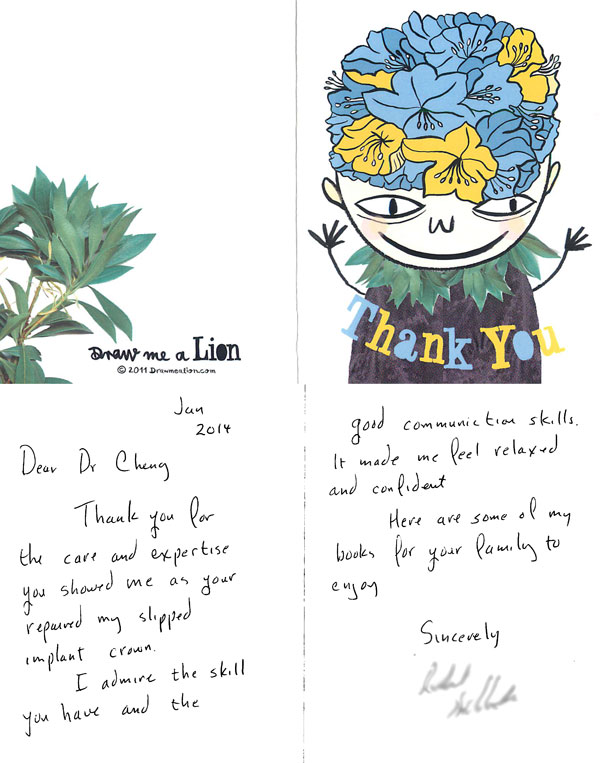 Draw me a Lion
© 2011 Drawmealion.com
Thank You
Jan
2014
Dear Dr Cheng
Thank you for
the care and expertise
you showed me as your
repaired my slipped
implant crown.
I admire the skill
you have and the
good communiction skills.
It made me feel relaxed
and confident
Here are some of my
books for your family to
enjoy
Sincerely